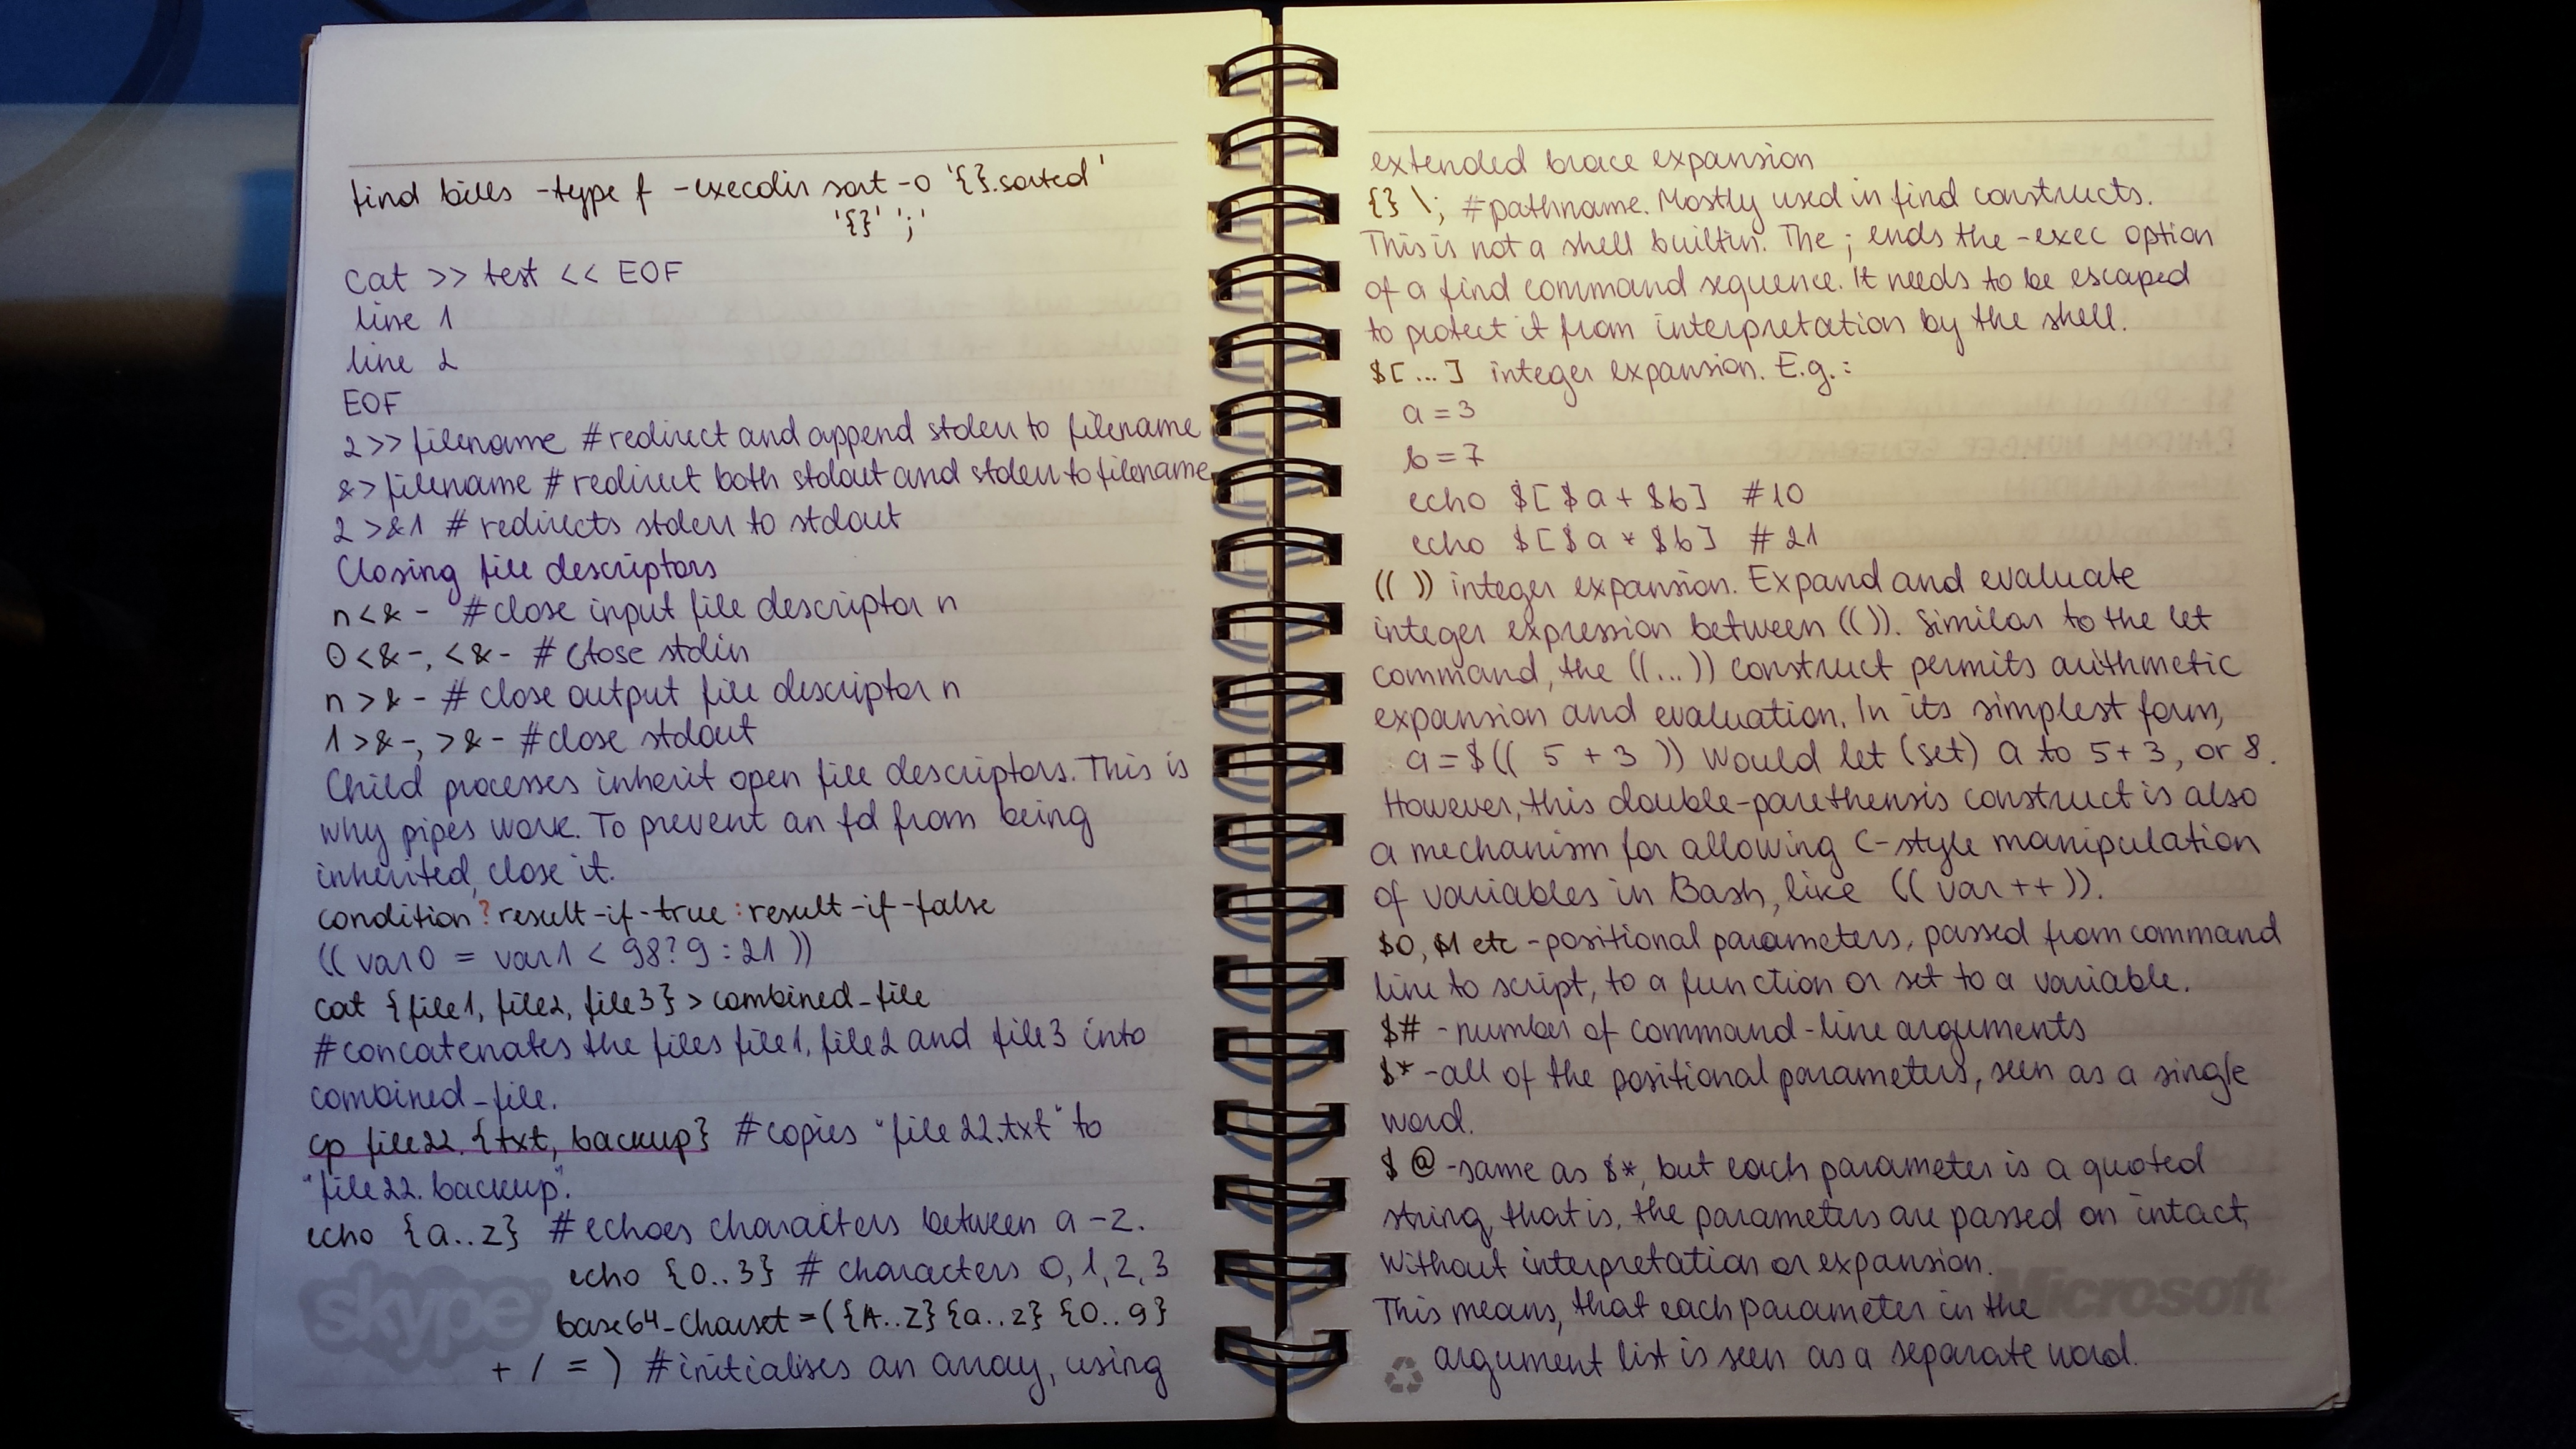 find bills -type f -execdir sort -o '{}.sorted'
'{}' ';'
cat >> test << EOF
line 1
line 2
EOF
2>> filename #redirect and append stderr to filename
&>filename # redirect both stdout and stderr to filename
2>&1 # redirects stderr to stdout
Closing file descriptors
n<&- #close input file descriptor n
0<&-, <&- # close stdin
n>&- # close output file descriptor n
1>&-, >&- #close stdout
Child processes inherit open file descriptors. This is
why pipes work. To prevent an fd from being
inherited, close it.
condition?result-if-true:result-if-false
(( var0 = var1 < 98?9:21 ))
cat {file1, file2, file3} > combined_file
#concatenates the files file1, file2 and file3 into
combined_file.
cp file22.{txt, backup} #copies "file22.txt" to
"file22.backup".
echo {a..z} #echoes characters between a-z.
echo {0..3} # characters 0, 1, 2, 3
base64_charset=({A..Z}{a..z} {0..9}
+ / = ) #initialises an array, using
skype
extended brace expansion
{} \; #pathname. Mostly used in find constructs.
This is not a shell builtin. The ; ends the -exec option
of a find command sequence. It needs to be escaped
to protect it from interpretation by the shell.
$[...] integer expansion. E.g.:
a=3
b=7
echo $[$a+$b] #10
echo $[$a*$b] #21
(( )) integer expansion. Expand and evaluate
integer expression between (( )). Similar to the let
command, the ((...)) construct permits arithmetic
expansion and evaluation. In its simplest form,
a=$(( 5 + 3 )) would let (set) a to 5+3, or 8.
However, this double-parethensis construct is also
a mechanism for allowing C-style manipulation
of variables in Bash, like (( var++ )).
$0, $1 etc - positional parameters, passed from command
line to script, to a function or set to a variable.
$# - number of command-line arguments
$* - all of the positional parameters, seen as a single
word.
$@ - same as $*, but each parameter is a quoted
string, that is, the parameters are passed on intact,
without interpretation or expansion.
This means, that each parameter in the
argument list is seen as a separate word.
Microsoft